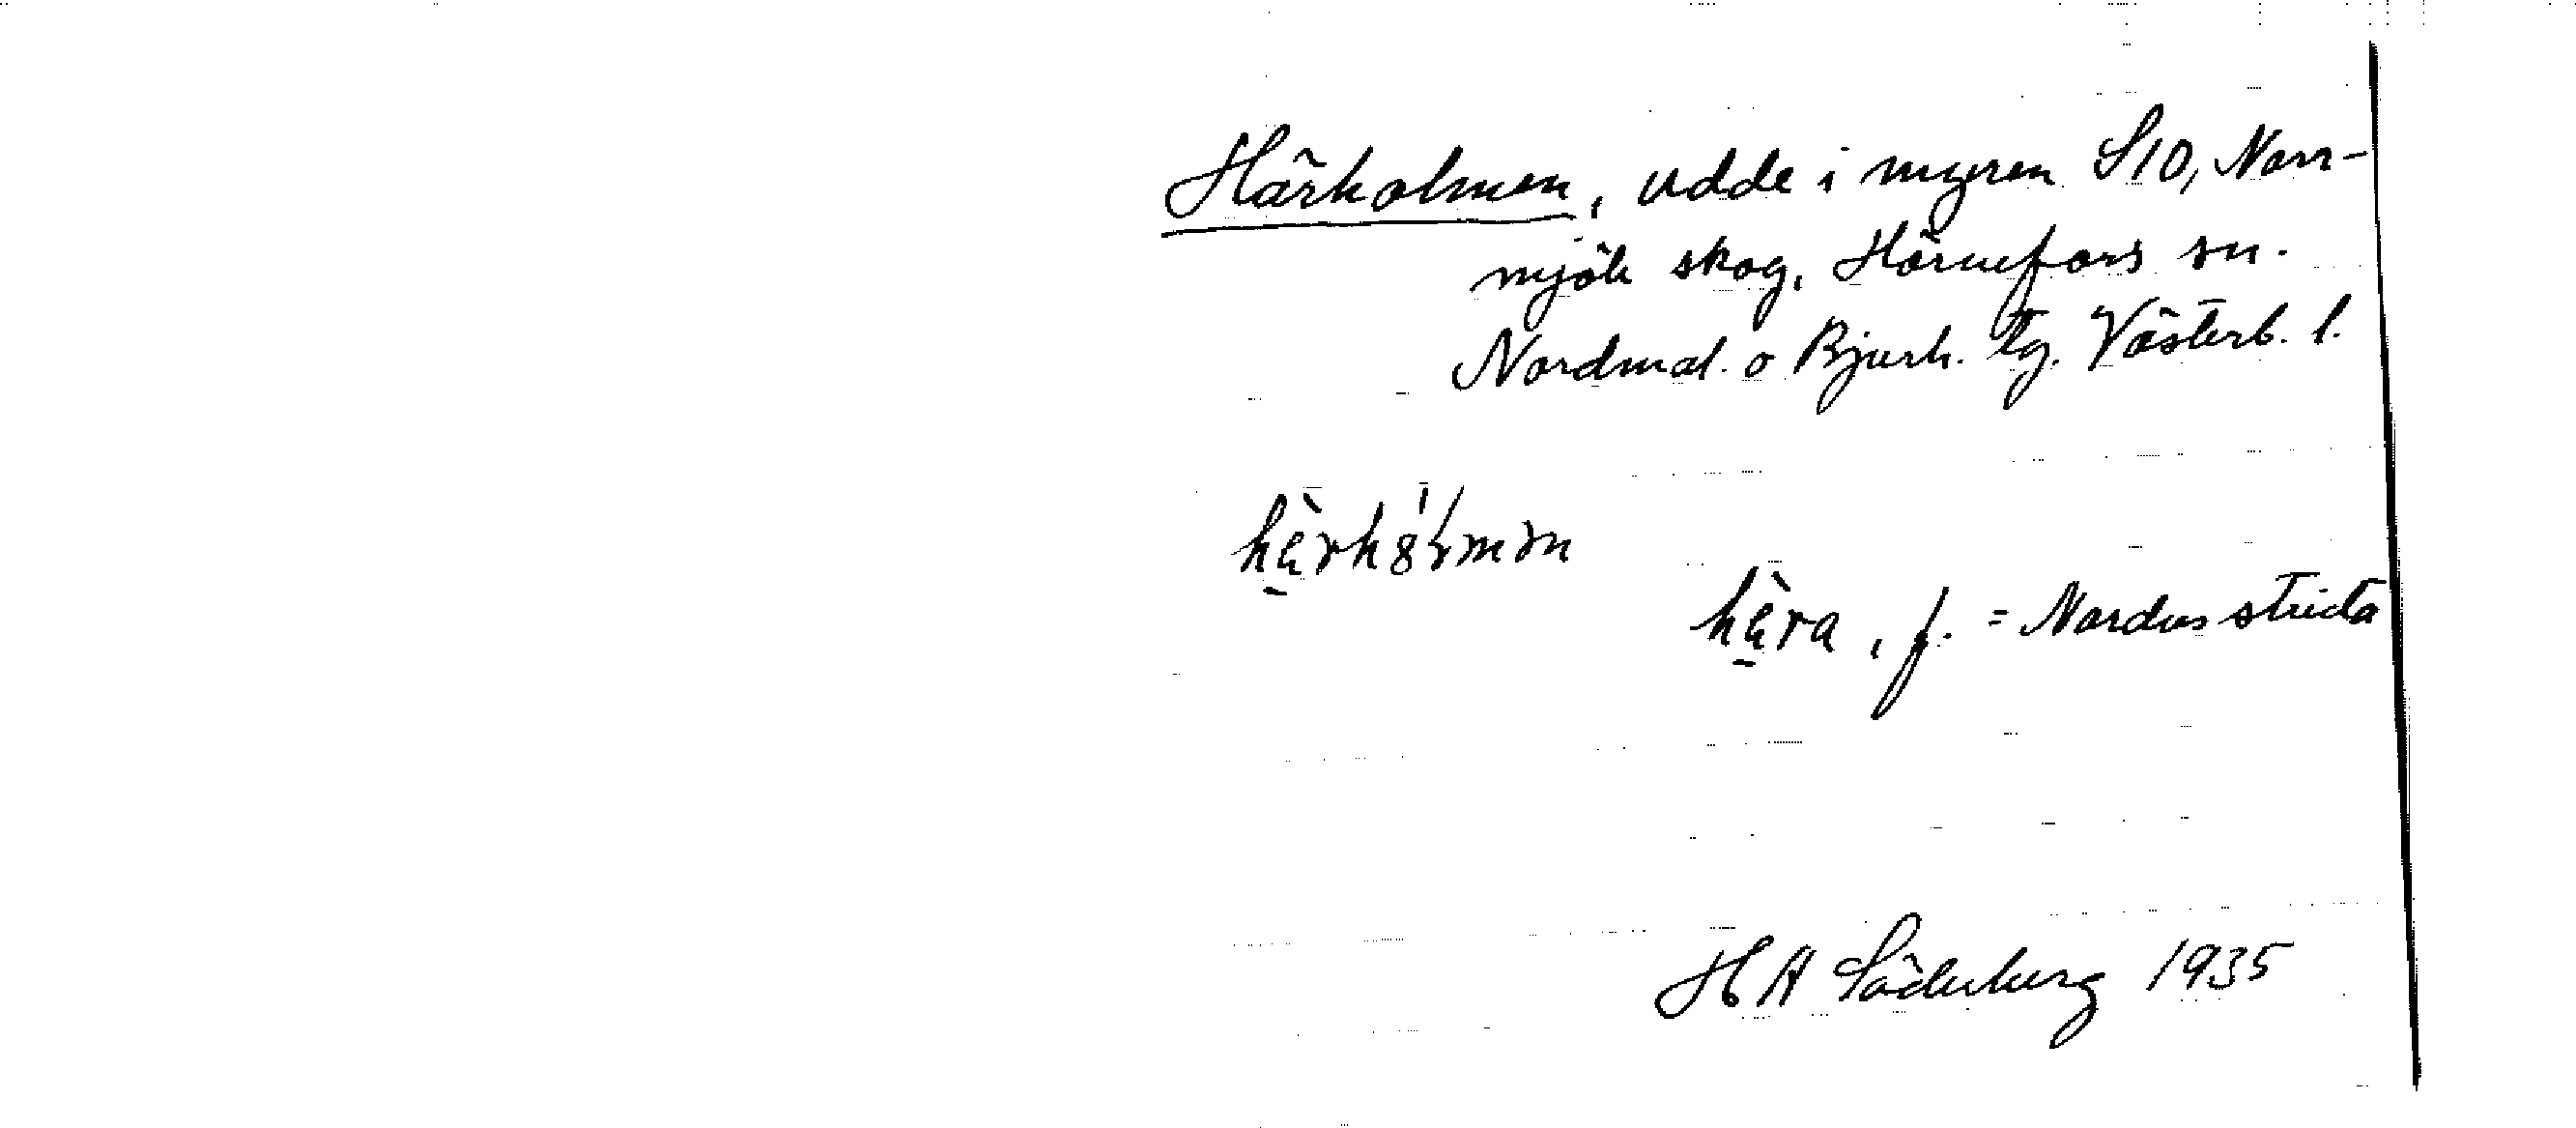 Härholmen, udde i myren S10, Norr-
mjöle skog, Hörnefors sn.
Nordmal. o Bjurh. tg. Västerb. l.
hära, f. = Nardus stricta
H A Söderberg 1935